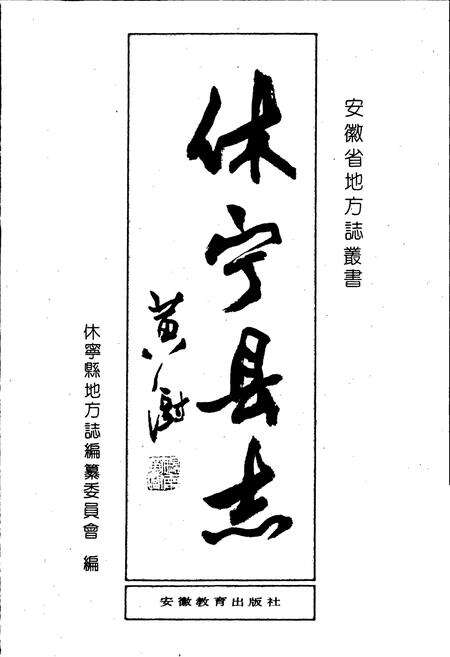 安徽省地方誌叢書
休宁县志
黄澍
休寧縣地方誌編纂委員會 編
安徽教育出版社